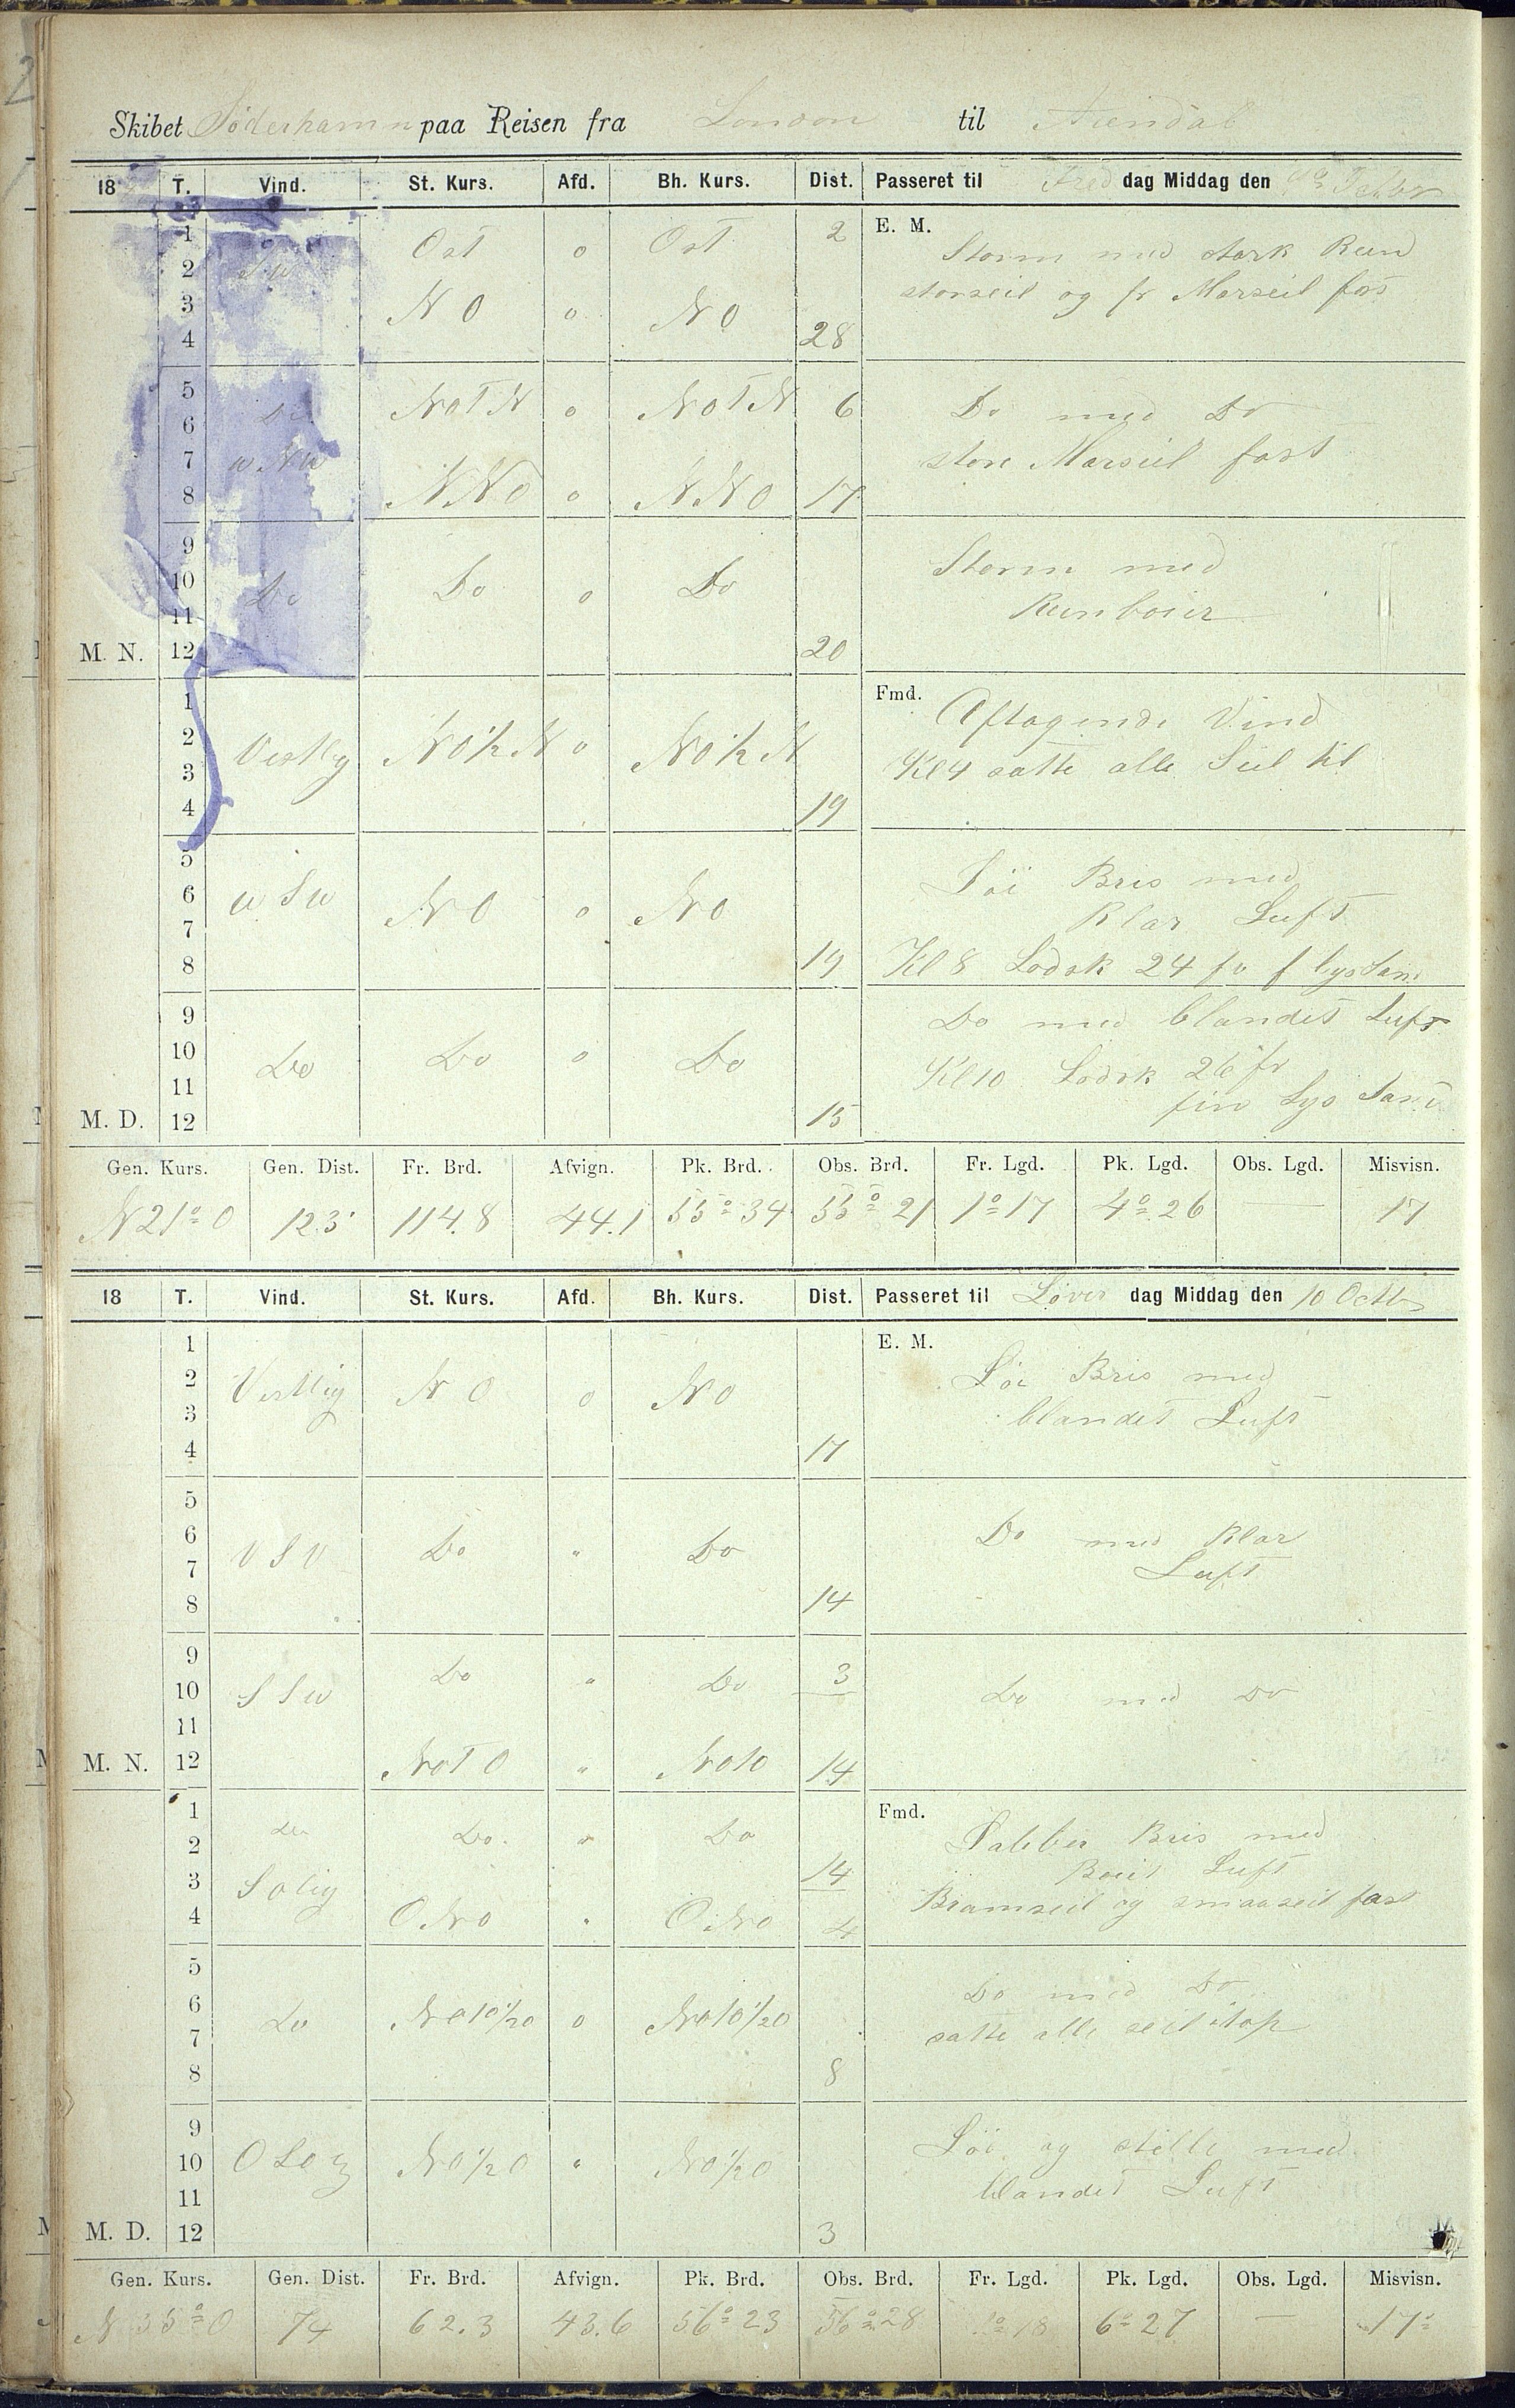 Skibet Söderhamn paa Reisen fra London til Arendal
18 T. Vind. St. Kurs. Afd. Bh. Kurs. Dist. Passeret til Fre dag Middag den
E. M.
1 Ost o Ost 2 Storm med stark Reen
2 SW storseil og fr Marseil fast
3 NO o NO
4 28
5 Do NOTN o NOTN 6 Do med Do
6 store Marseil fast
7 WNW
8 NNO o NNO 17
9 Storm med
10 Do Do o Do Reenboier
11
M. N. 12 20
Fmd.
1 Aftagende Vind
2 Vestlig NO ½ N o NO ½ N Kl 4 satte alle Seil til
3
4 19
5 Löi Bris med
6 WSW NO o NO Klar Luft
7
8 19 Kl 8 Lodsk 24 fv f lys Sand
9 Do med blandet Luft
10 Do Do o Do Kl 10 Lodsk 26 fv
11 fin Lys Sand
M. D. 12 15
Gen. Kurs. Gen. Dist. Fr. Brd. Afvign. Pk. Brd. Obs. Brd. Fr. Lgd. Pk. Lgd. Obs. Lgd. Misvisn.
N 21° O 123' 114.8 44.1 55° 34 55° 21 1° 17 4° 26 — 17
18 T. Vind. St. Kurs. Afd. Bh. Kurs. Dist. Passeret til Löver dag Middag den 10 Octbr
E. M.
1 Löi Bris med
2 Vestlig NO o NO blandet Luft
3
4 17
5
6 VSV Do " Do Do med Klar
7 Luft
8 14
9 Do " Do 3
10 SSW Do med Do
11
M. N. 12 NOTO " NOtO 14
Fmd.
1 Do Do " Do Labber Bris med
2 Luft
3 Solig 14 Bramseil og smaaseil fast
4 ONO " ONO 4
5 Do med Do
6 Do NOtO½O o NOtO½O satte alle seil itop
7
8 8
9 Löi og stille med
10 NO½O " NO½O blandet Luft
11
M. D. 12 3
Gen. Kurs. Gen. Dist. Fr. Brd. Afvign. Pk. Brd. Obs. Brd. Fr. Lgd. Pk. Lgd. Obs. Lgd. Misvisn.
N 35° O 74 62.3 43.6 56° 23 56° 28 1° 18 6° 27 — 17°